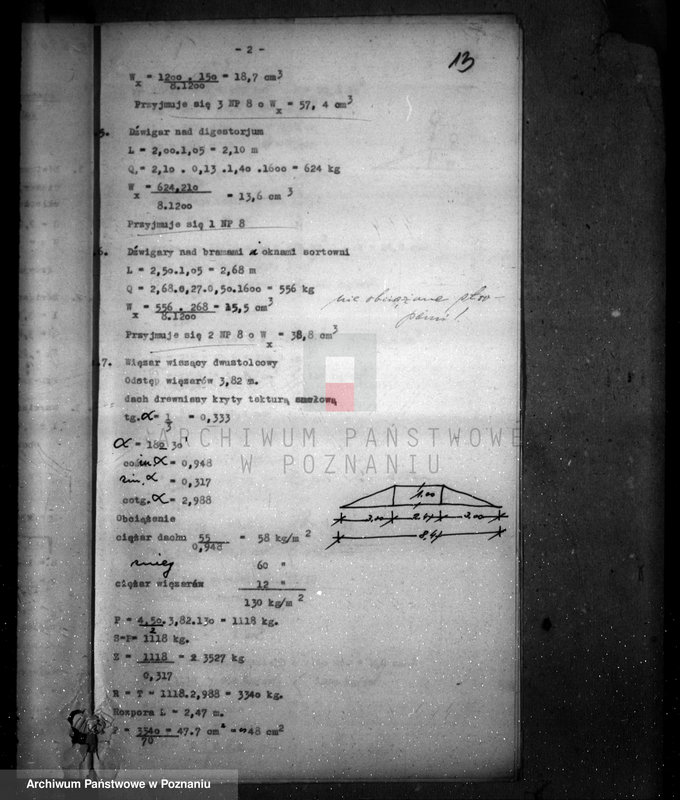 - 2 -
13
Wx = 1200 . 150 = 18,7 cm3
8.1200
Przyjmuje się 3 NP 8 o Wx = 57, 4 cm3
5. Dźwigar nad digestorjum
L = 2,00.1,05 = 2,10 m
Q. = 2,10 . 0,13 .1,40 .1600 = 624 kg
Wx = 624,210 = 13,6 cm 3
8.1200
Przyjmuje się 1 NP 8
6. Dźwigary nad bramami i oknami sortowni
L = 2,50.1,05 = 2,68 m
Q = 2,68.0,27.0,50.1600 = 556 kg
nie obciążone
Wx = 556 . 268 = 15,5 cm3
8.1200
Przyjmuje się 2 NP 8 o Wx = 38,8 cm3
7. Więzar wiszący dwustolcowy
Odstęp więzarów 3,82 m.
dach drewniany kryty tekturą smołową
tg.α = 1 = 0,333
3
α = 18o 30'
cosin.α = 0,948
sin.α = 0,317
cotg.α = 2,988
Obciążenie
ciężar dachu 55 = 58 kg/m 2
0,948
śnieg 60 "
ciężar więzarów 12 "
130 kg/m 2
1.00
3.00 2.47 3.00
8.47
P = 4,50.3,82.130 = 1118 kg.
2
S=P= 1118 kg.
Z = 1118 = 3527 kg
0,317
R = T = 1118.2,988 = 3340 kg.
Rozpora L = 2,47 m.
F = 3340 = 47.7 cm2 = ~48 cm2
70
ARCHIWUM PAŃSTWOWE
W POZNANIU
Archiwum Państwowe w Poznaniu